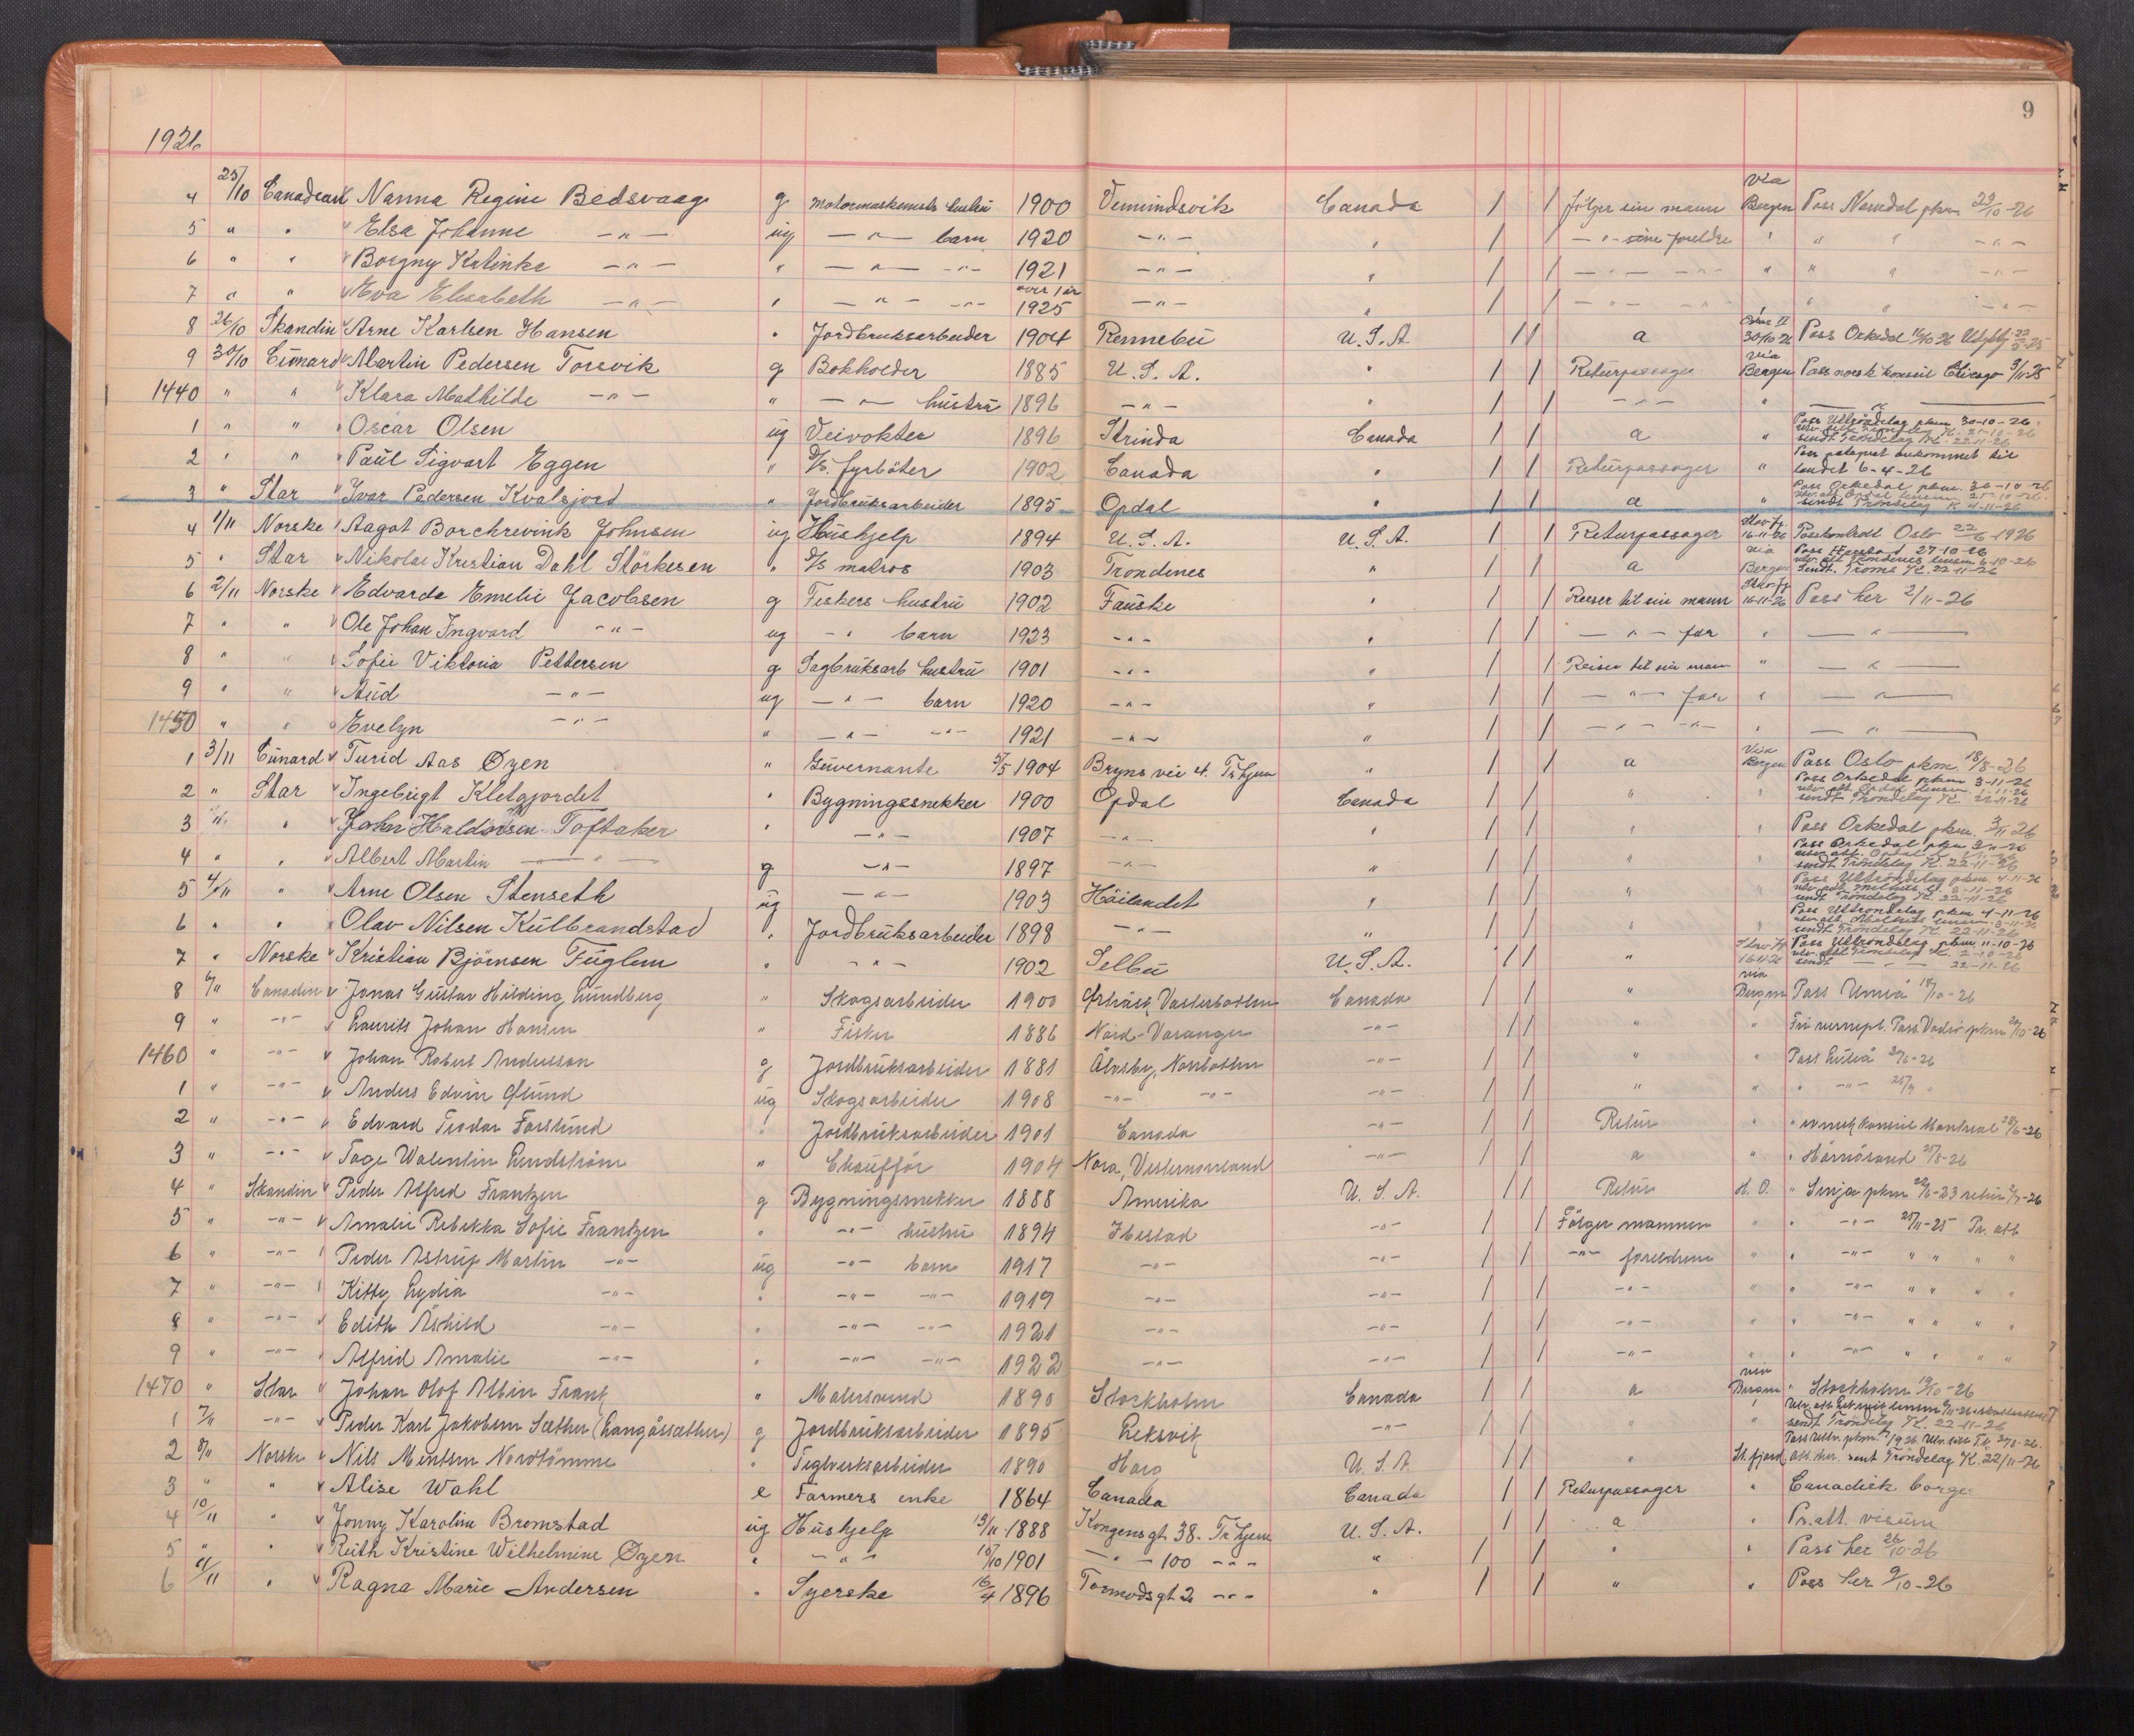 9
1926
4 25/10 Canadean Nanna Regine Bedsvaag g motormaskinists hustru 1900 Vemundsvik Canada / / følger sin mann via Bergen Pass Namdal pkm 23/10-26
5 " " Elsa Johanne -"- ug -"- barn 1920 -"- " / / -"- sine foreldre " " " -"-
6 " " Borgny Katinka -"- " -"- -"- 1921 -"- " / / -"- -"- " " " -"-
7 " " Eva Elisabeth -"- " -"- -"- over 1 år 1925 -"- " / / -"- -"- " " -"-
8 26/10 Skandin Arne Karlsen Hansen " Jordbruksarbeider 1904 Rennebu U.S.A. / / a 30/10 26 Pass Orkedal
9 30/10 Cunard Martin Pedersen Torsvik g Bokholder 1885 U.S.A. " / / Returpassager via Bergen Pass norsk konsul Chicago 3/11-25
1440 " " Klara Mathilde -"- " -"- hustru 1896 -"- " / / -"- " -"-
1 " " Oscar Olsen ug Veivokter 1896 Strinda Canada / / a " Pass Uttröndelag pkm 30-10-26 sendt Tröndelag K. 22-11-26
2 " " Paul Sigvart Eggen " D/S. fyrböter 1902 Canada " / / Returpassager " Pass pategnet ankommet til landet 6-4-26
3 " Star Ivar Pedersen Kvalsjord " Jordbruksarbeider 1895 Opdal " / / a " Pass Orkedal pkm. 30-10-26 sendt Tröndelag K 4-11-26
4 1/11 Norske Aagot Borchrevink Johnsen ug Hushjelp 1894 U.S.A. U.S.A. / / Returpassager 16-11-26 Passkontrolt Oslo 22/6-1926
5 " Star Nikolai Kristian Dahl Störkesen " D/S matros 1903 Trondenes " / / a via Bergen Pass Harstad 27-10-26 Sendt. Troms K. 22-11-26
6 2/11 Norske Edvarda Emelie Jacobsen g Fiskers hustru 1902 Fauske " / / Reiser til sin mann 16-11-26 Pass her 2/11-26
7 " " Ole Johan Ingvard -"- ug -"- barn 1923 -"- " / / -"- far " -"-
8 " " Sofie Viktoria Pettersen g Sagbruksarb hustru 1901 -"- " / / Reiser til sin mann " -"-
9 " " Aud -"- ug -"- barn 1920 -"- " / / -"- far " -"-
1450 " " Evelyn -"- " -"- -"- 1921 -"- " / / -"- -"- " -"-
1 3/11 Cunard Turid Aas Øyen " Guvernante 5/5 1904 Bryns vei 4. Tr.hjem " / / a Via Bergen Pass Oslo pkm. 18/8-26
2 " Star Ingebrigt Kletgjordet " Bygningssnekker 1900 Opdal Canada / / " " Pass Orkedal pkm 3-11-26 sendt Tröndelag K. 22-11-26
3 " " John Haldorsen Toftaker " -"- 1907 -"- " / / " " Pass Orkedal pkm. 3/11 26
4 " " Albert Martin -"- g -"- 1897 -"- " / / " " Pass Orkedal pkm 3-11-26 sendt Tröndelag K. 22-11-26
5 4/11 " Arne Olsen Stenseth ug -"- 1903 Höilandet " / / " " Pass Uttröndelag pkm 4-11-26 sendt Tröndelag K. 22-11-26
6 " " Olav Nilsen Kulbrandstad " Jordbruksarbeider 1898 -"- " / / " " Pass Uttröndelag pkm 4-11-26 sendt Tröndelag K. 22-11-26
7 " Norske Kristian Björnsen Fuglem " -"- 1902 Selbu U.S.A. / / " 16-11-26 Pass Uttröndelag pkm 11-10-26 sendt -"- 22-11-26
8 6/11 Canadien Jonas Gustav Hilding Lundberg " Skogsarbeider 1900 Västerbotten Canada / / " via Bergen Pass Umeå 18/10-26
9 " -"- Laurits Johan Hansen " Fisker 1886 Nord-Varanger -"- / / " " Fri vernepl. Pass Vadsö pkm 20/10-26
1460 " -"- Johan Robert Andersson g Jordbruksarbeider 1881 Älvsby, Norrbotten -"- / / " " Pass Luleå
1 " -"- Anders Edvin Glund ug Skogsarbeider 1908 -"- -"- -"- / / " " " -"-
2 " -"- Edvard Teodor Forslund " Jordbruksarbeider 1901 Canada -"- / / Retur " " svensk konsul Montreal
3 " -"- Tage Walentin Lundström " Chaufför 1904 Nora, Vesternorrland -"- / / a " " Härnösand 25/8-26
4 " Skandin Peder Alfred Frantzen g Bygningssnekker 1888 Amerika U.S.A. / / Retur H.O. " Senja pkm
5 " -"- Amalie Rebekka Sofie Frantzen " -"- hustru 1894 Ibestad -"- / / Följer mannen " " -"- 25/11-25 Pr. att
6 " -"- Peder Astrup Martin -"- ug -"- barn 1917 -"- -"- / / -"- foreldrene " " -"- " " "
7 " -"- Kitty Lydia -"- " -"- -"- 1919 -"- -"- / / -"- " " -"- " " "
8 " -"- Edith Åshild -"- " -"- -"- 1921 -"- -"- / / -"- " " -"- " " "
9 " -"- Alfrid Amalie -"- " -"- -"- 1922 -"- -"- / / -"- " " -"- " " "
1470 " Star Johan Olof Albin Frank " Malersvend 1890 Stockholm Canada / / a via Bergen " Stockholm 19/10-26
1 7/11 -"- Peder Karl Jakobsen Sæther (Langåssæther) g Jordbruksarbeider 1895 Leksvik -"- / / " " sendt Tröndelag K. 22-11-26
2 8/11 Norske Nils Mentsen Nordtömme " Teglverksarbeider 1890 Horg U.S.A. / / " St.fjord att. her. sent Tröndelag K. 22/11-26
3 " " Alise Wahl e Farmers enke 1864 Canada Canada / / Returpassager " Canadisk borger
4 10/11 " Jonny Karoline Bromstad ug Hushjelp 13/11-1888 Kongensgt. 38. Tr.hjem U.S.A. / / a " Pr.att. visum
5 " " Ruth Kristine Wilhelmine Øyen " -"- 15/10 1901 -"- 100 -"- " / / " " Pass her 26/10-26
6 11/11 " Ragna Marie Andersen " Syerske 16/4 1896 Tormodsgt 2 -"- " / / " " Pass her 9/10-26
33